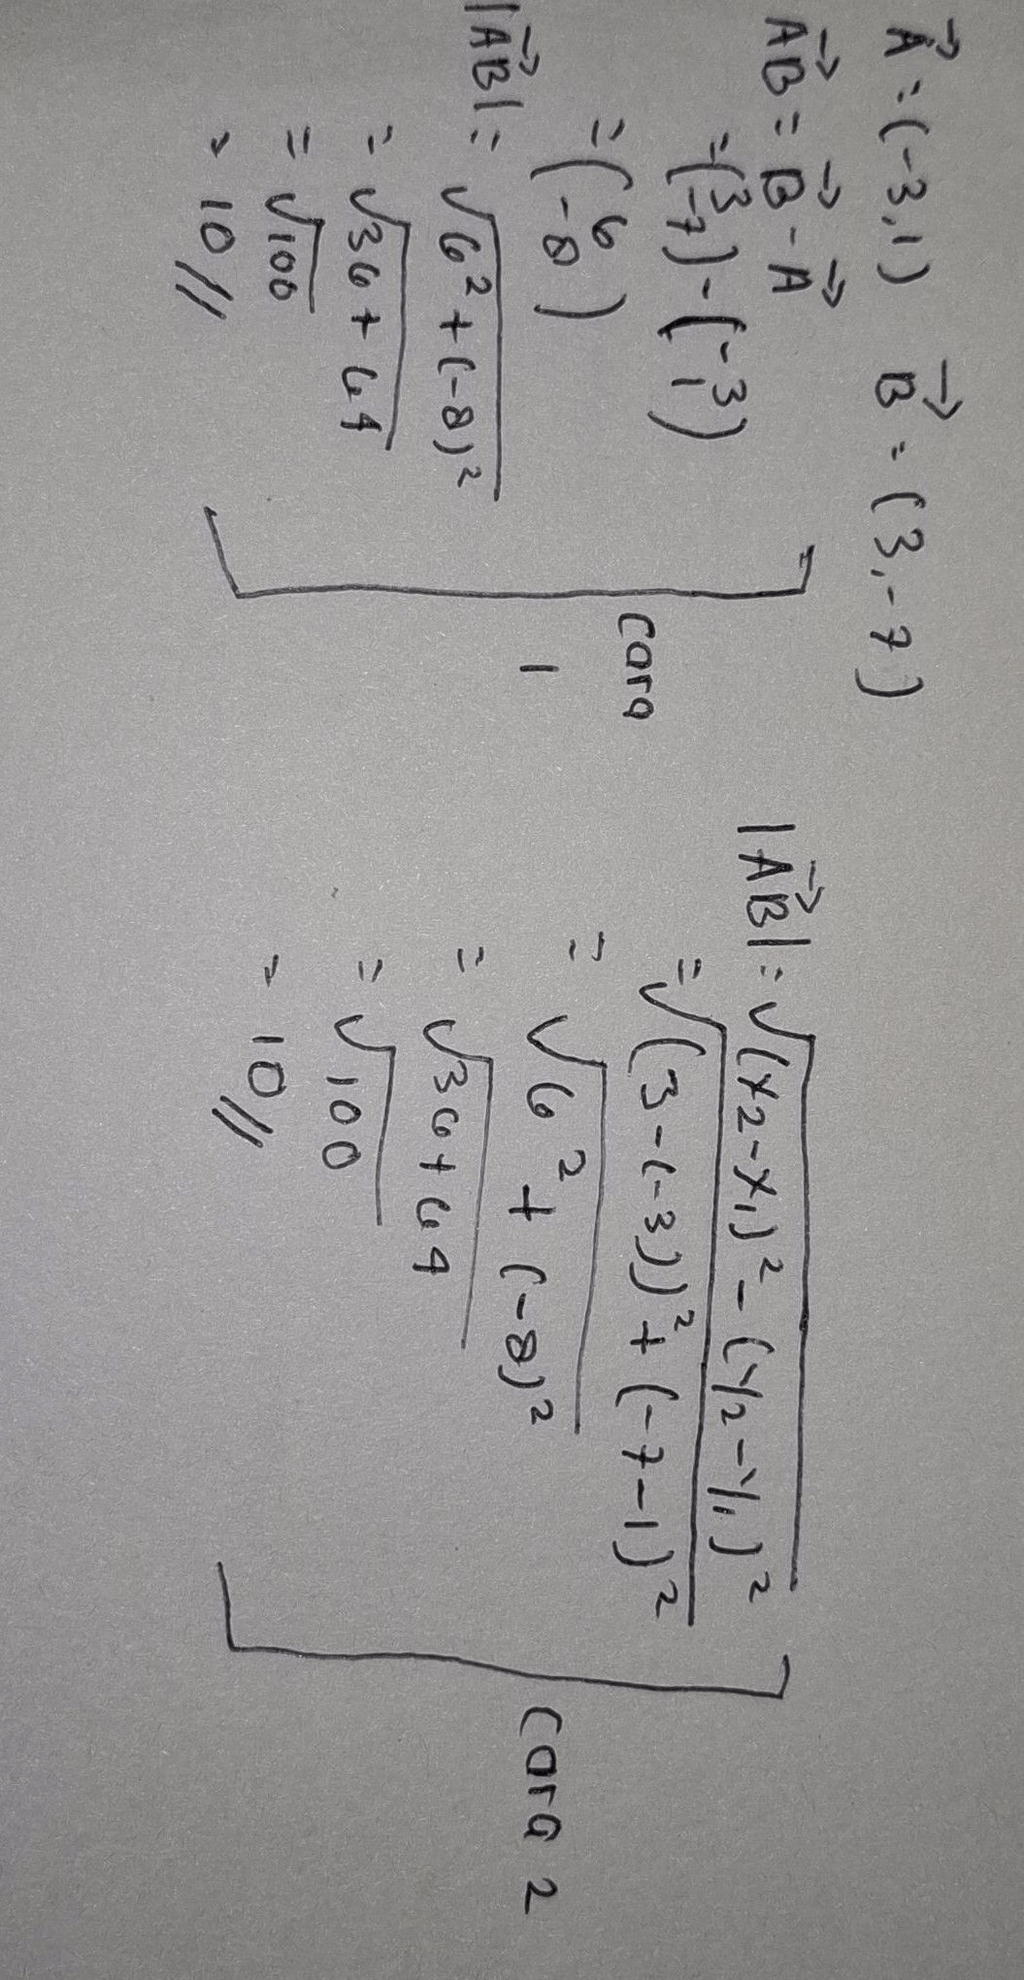 A⃗ = (-3,1) B⃗ = (3,-7)
AB⃗ = B⃗ - A⃗
= (3 -7) - (-3 1)
= (6 -8)
|AB⃗| = √6² + (-8)²
= √36 + 64
= √100
= 10//
Cara
1
|AB⃗| = √(x2-x1)² - (y2-y1)²
= √(3-(-3))² + (-7-1)²
= √6² + (-8)²
= √36 + 64
= √100
= 10//
Cara 2